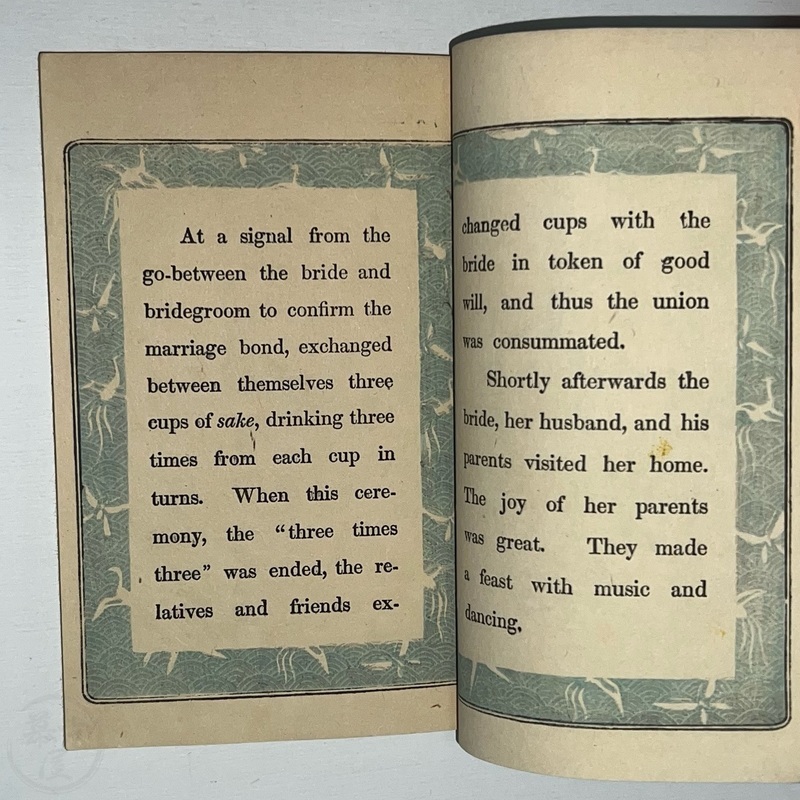 At a signal from the
go-between the bride and
bridegroom to confirm the
marriage bond, exchanged
between themselves three
cups of sake, drinking three
times from each cup in
turns. When this cere-
mony, the “three times
three” was ended, the re-
latives and friends ex-
changed cups with the
bride in token of good
will, and thus the union
was consummated.
Shortly afterwards the
bride, her husband, and his
parents visited her home.
The joy of her parents
was great. They made
a feast with music and
dancing.